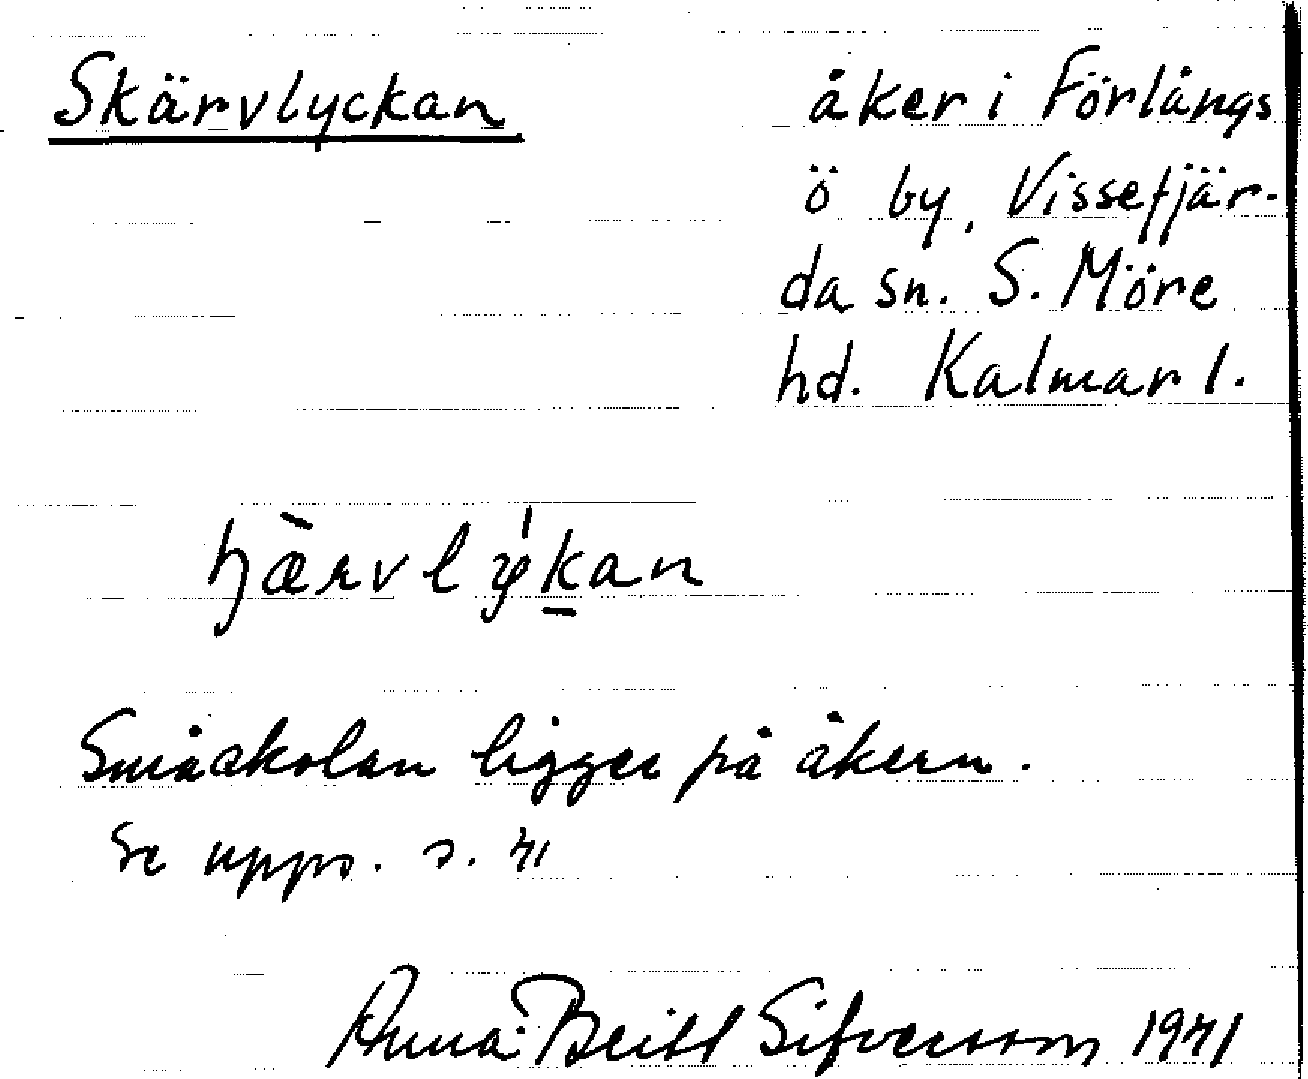 Skärvlyckan
åker i Förlångs
ö by, Vissefjär-
da sn. S. Möre
hd. Kalmar l.
Småskolan ligger på åkern.
Se upps. s. 41
Anna-Britt Sifversson 1941